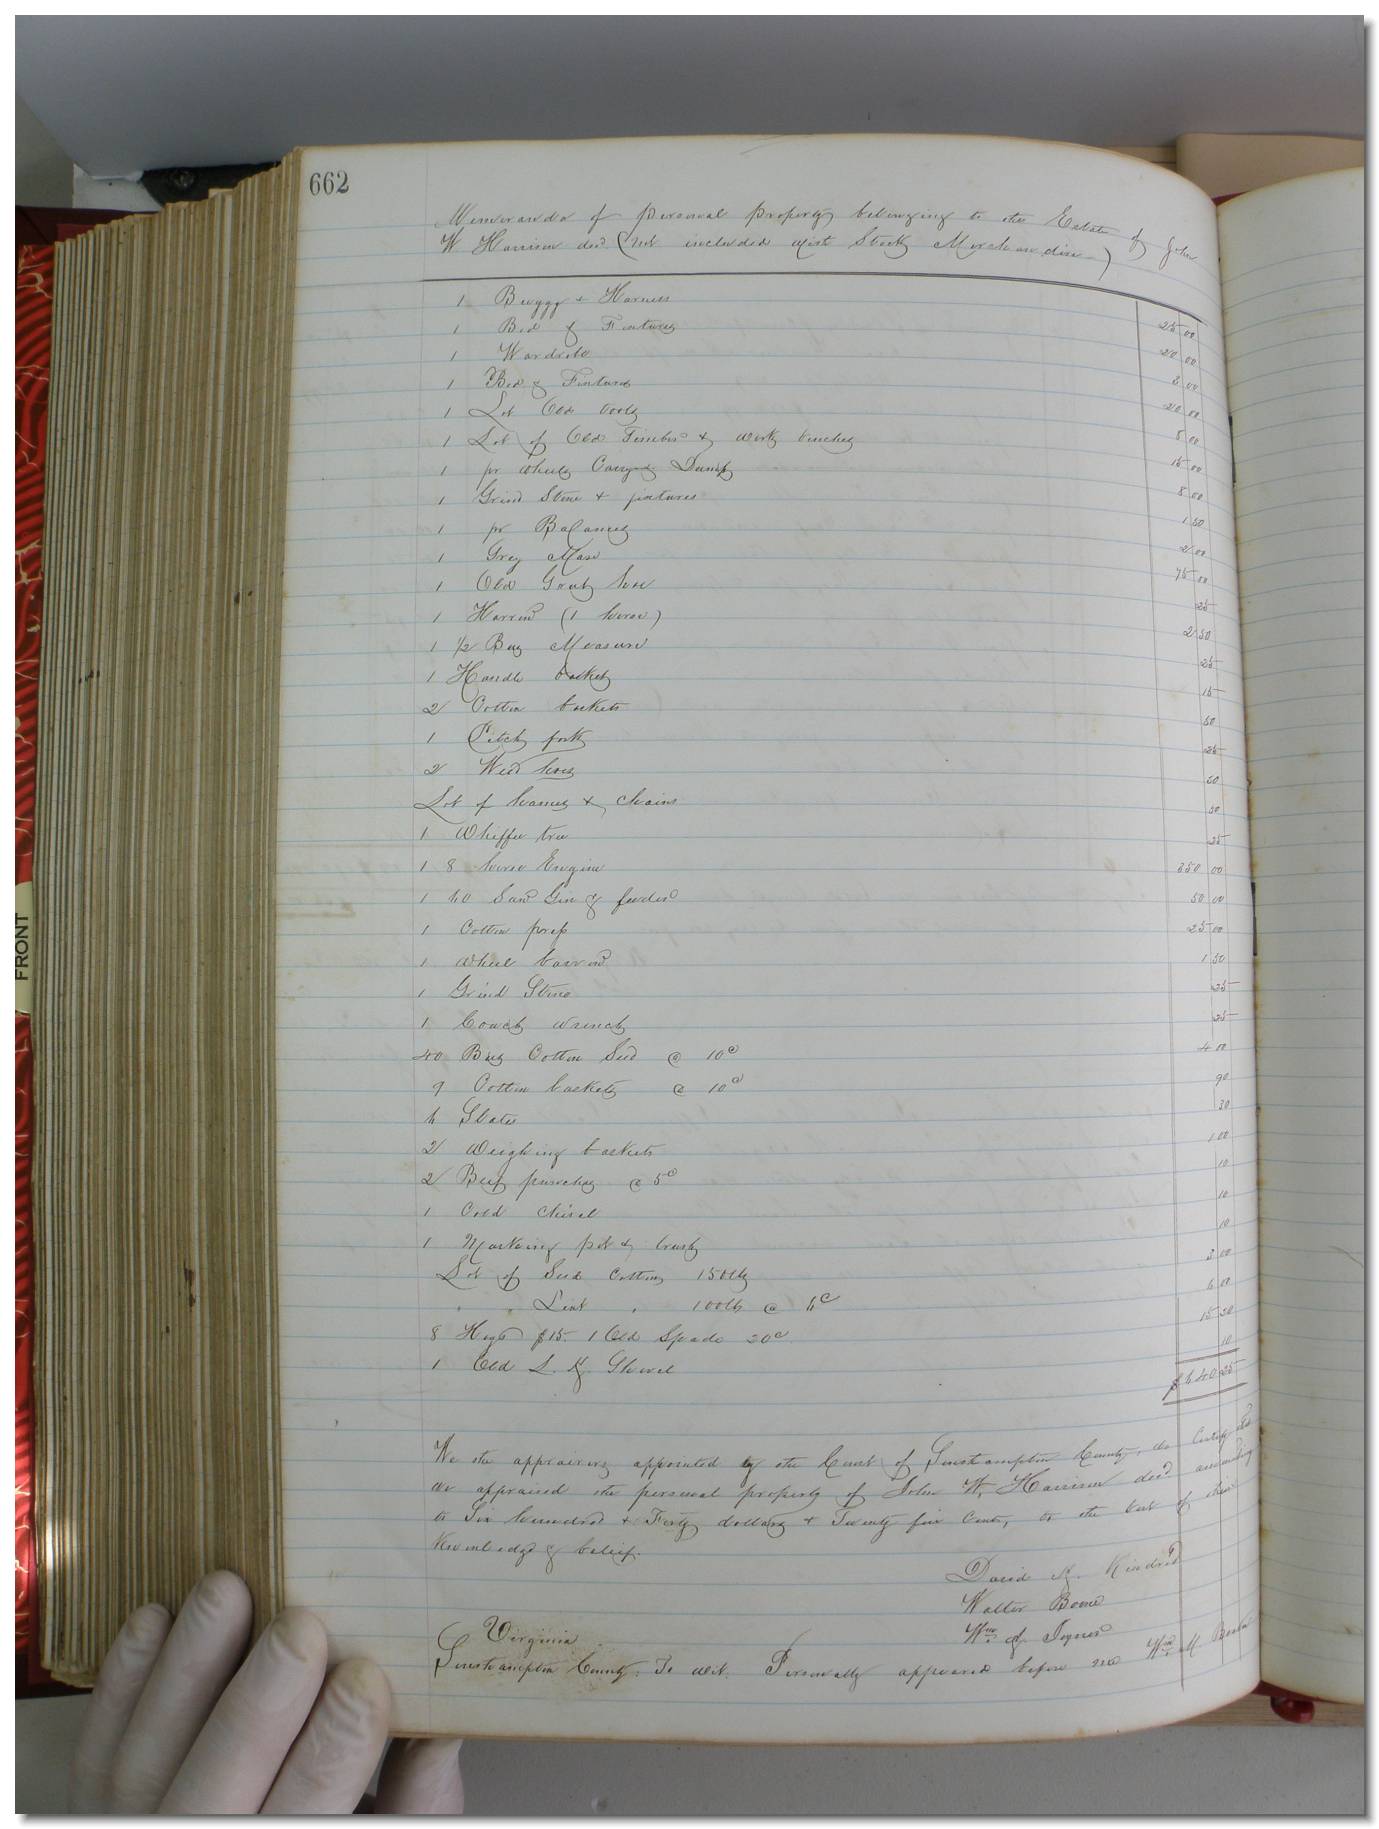 662
Memoranda of personal property belonging to the Estate of John
W Harrison decd (not included with Stock Merchandise)
1 Buggy & Harness 25 00
1 Bed & Fixtures 20 00
1 Wardrobe 3 00
1 Bed & Fixtures 20 00
1 Lot Old tools 5 00
1 Lot of Old Timber & work benches 15 00
1 pr wheels Carry & Dump 8 00
1 Grind Stone & fixtures 1 50
1 pr Balances 2 00
1 Grey Mare 75 00
1 Old Grub hoe 25
1 Harrow (1 horse) 2 50
1 1/2 Bus Measure 25
1 Handle basket 15
2 Cotton baskets 50
1 Pitch fork 25
2 Weed hoes 20
Lot of hames & chains 50
1 Whiffle tree 25
1 8 horse Engine 350 00
1 60 Saw Gin & feeder 50 00
1 Cotton press 25 00
1 Wheel barrow 1 50
1 Grind Stone 25
1 Coach wrench 25
40 Bus Cotton Seed @ 10c 4 00
9 Cotton baskets @ 10c 90
6 Slates 30
2 Weighing baskets 1 00
2 Belt punches @ 5c 10
1 Cold chisel 10
1 Marking pot & brush 10
Lot of Seed Cotton 150lbs 3 00
" " Lint " 100lbs @ 6c 6 00
8 Hogs $15. 1 Old Spade 20c 15 20
1 Old L. H. Shovel 10
$640 25
We the appraisers appointed by the Court of Southampton County, do certify that
we appraised the personal property of John W. Harrison decd amounting
to Six hundred & Forty dollars & Twenty five Cents, to the best of their
Knowledge & belief.
David H. Kindred
Walter Boone
Wm J Joyner
Virginia
Southampton County: To wit: Personally appeared before me Wm
FRONT